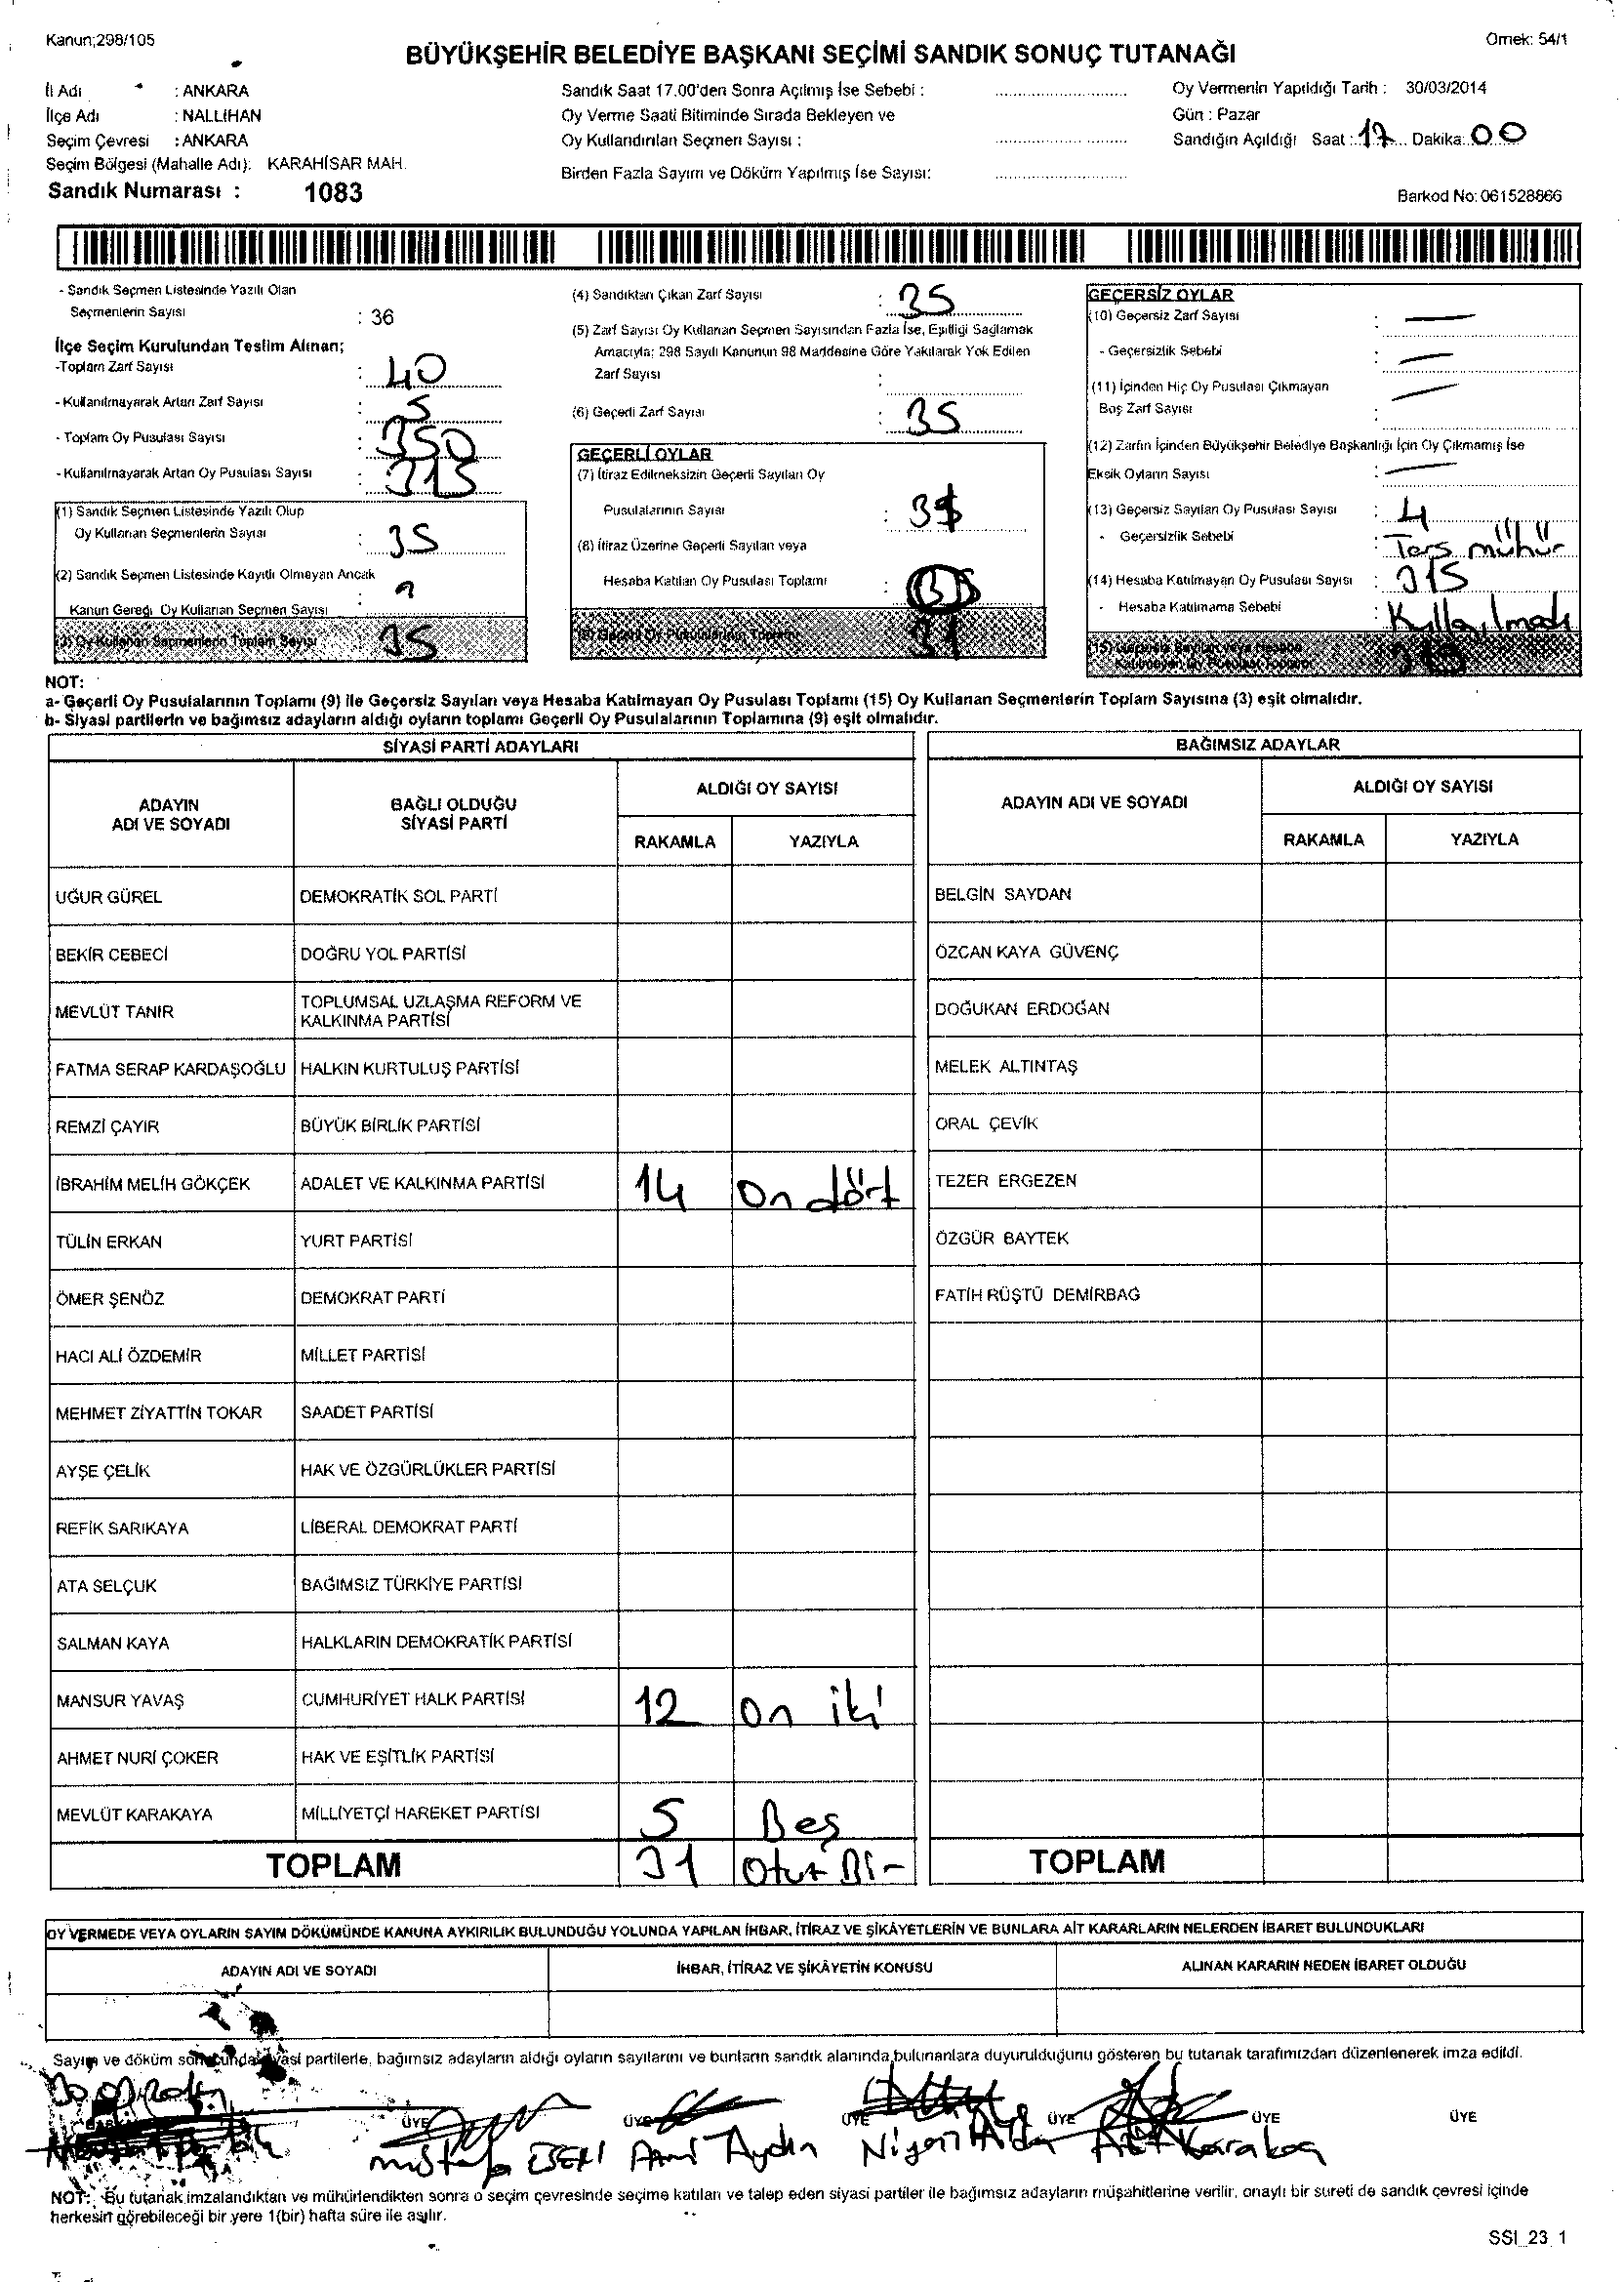 Kanun;298/105
Örnek: 54/1
BÜYÜKŞEHİR BELEDİYE BAŞKANI SEÇİMİ SANDIK SONUÇ TUTANAĞI
İl Adı : ANKARA
İlçe Adı : NALLIHAN
Seçim Çevresi : ANKARA
Seçim Bölgesi (Mahalle Adı): KARAHİSAR MAH.
Sandık Numarası : 1083
Sandık Saat 17.00'den Sonra Açılmış İse Sebebi :
Oy Verme Saati Bitiminde Sırada Bekleyen ve
Oy Kullandırılan Seçmen Sayısı :
Birden Fazla Sayım ve Döküm Yapılmış İse Sayısı:
Oy Vermenin Yapıldığı Tarih : 30/03/2014
Gün : Pazar
Sandığın Açıldığı Saat : 17 Dakika: 00
Barkod No: 061528866
- Sandık Seçmen Listesinde Yazılı Olan
Seçmenlerin Sayısı : 36
İlçe Seçim Kurulundan Teslim Alınan;
-Toplam Zarf Sayısı : 40
- Kullanılmayarak Artan Zarf Sayısı : 5
- Toplam Oy Pusulası Sayısı : 350
- Kullanılmayarak Artan Oy Pusulası Sayısı : 315
(1) Sandık Seçmen Listesinde Yazılı Olup
Oy Kullanan Seçmenlerin Sayısı : 35
(2) Sandık Seçmen Listesinde Kayıtlı Olmayan Ancak
Kanun Gereği Oy Kullanan Seçmen Sayısı :
(3) Oy Kullanan Seçmenlerin Toplam Sayısı 35
(4) Sandıktan Çıkan Zarf Sayısı : 35
(5) Zarf Sayısı Oy Kullanan Seçmen Sayısından Fazla İse, Eşitliği Sağlamak
Amacıyla; 298 Sayılı Kanunun 98 Maddesine Göre Yakılarak Yok Edilen
Zarf Sayısı :
(6) Geçerli Zarf Sayısı : 35
GEÇERLİ OYLAR
(7) İtiraz Edilmeksizin Geçerli Sayılan Oy
Pusulalarının Sayısı :
(8) İtiraz Üzerine Geçerli Sayılan veya
Hesaba Katılan Oy Pusulası Toplamı :
(9) Geçerli Oy Pusulalarının Toplamı 31
GEÇERSİZ OYLAR
(10) Geçersiz Zarf Sayısı : —
- Geçersizlik Sebebi : —
(11) İçinden Hiç Oy Pusulası Çıkmayan —
Boş Zarf Sayısı :
(12) Zarfın İçinden Büyükşehir Belediye Başkanlığı İçin Oy Çıkmamış İse
Eksik Oyların Sayısı : —
(13) Geçersiz Sayılan Oy Pusulası Sayısı : 4
- Geçersizlik Sebebi : Ters mühür
(14) Hesaba Katılmayan Oy Pusulası Sayısı : 315
- Hesaba Katılmama Sebebi :
(15) Geçersiz Sayılan veya Hesaba
Katılmayan Oy Pusulası Toplamı
NOT:
a- Geçerli Oy Pusulalarının Toplamı (9) ile Geçersiz Sayılan veya Hesaba Katılmayan Oy Pusulası Toplamı (15) Oy Kullanan Seçmenlerin Toplam Sayısına (3) eşit olmalıdır.
b- Siyasi partilerin ve bağımsız adayların aldığı oyların toplamı Geçerli Oy Pusulalarının Toplamına (9) eşit olmalıdır.
SİYASİ PARTİ ADAYLARI
ADAYIN ADI VE SOYADI
BAĞLI OLDUĞU SİYASİ PARTİ
ALDIĞI OY SAYISI
RAKAMLA YAZIYLA
UĞUR GÜREL DEMOKRATİK SOL PARTİ
BEKİR CEBECİ DOĞRU YOL PARTİSİ
MEVLÜT TANIR TOPLUMSAL UZLAŞMA REFORM VE
KALKINMA PARTİSİ
FATMA SERAP KARDAŞOĞLU HALKIN KURTULUŞ PARTİSİ
REMZİ ÇAYIR BÜYÜK BİRLİK PARTİSİ
İBRAHİM MELİH GÖKÇEK ADALET VE KALKINMA PARTİSİ 14 On dört
TÜLİN ERKAN YURT PARTİSİ
ÖMER ŞENÖZ DEMOKRAT PARTİ
HACI ALİ ÖZDEMİR MİLLET PARTİSİ
MEHMET ZİYATTİN TOKAR SAADET PARTİSİ
AYŞE ÇELİK HAK VE ÖZGÜRLÜKLER PARTİSİ
REFİK SARIKAYA LİBERAL DEMOKRAT PARTİ
ATA SELÇUK BAĞIMSIZ TÜRKİYE PARTİSİ
SALMAN KAYA HALKLARIN DEMOKRATİK PARTİSİ
MANSUR YAVAŞ CUMHURİYET HALK PARTİSİ 12 on iki
AHMET NURİ ÇOKER HAK VE EŞİTLİK PARTİSİ
MEVLÜT KARAKAYA MİLLİYETÇİ HAREKET PARTİSİ 5 Beş
TOPLAM 31 Otuz Bir
BAĞIMSIZ ADAYLAR
ADAYIN ADI VE SOYADI
ALDIĞI OY SAYISI
RAKAMLA YAZIYLA
BELGİN SAYDAN
ÖZCAN KAYA GÜVENÇ
DOĞUKAN ERDOĞAN
MELEK ALTINTAŞ
ORAL ÇEVİK
TEZER ERGEZEN
ÖZGÜR BAYTEK
FATİH RÜŞTÜ DEMİRBAĞ
TOPLAM
OY VERMEDE VEYA OYLARIN SAYIM DÖKÜMÜNDE KANUNA AYKIRILIK BULUNDUĞU YOLUNDA YAPILAN İHBAR, İTİRAZ VE ŞİKÂYETLERİN VE BUNLARA AİT KARARLARIN NELERDEN İBARET BULUNDUKLARI
ADAYIN ADI VE SOYADI İHBAR, İTİRAZ VE ŞİKÂYETİN KONUSU ALINAN KARARIN NEDEN İBARET OLDUĞU
Sayım ve döküm sonucunda siyasi partilerle, bağımsız adayların aldığı oyların sayılarını ve bunların sandık alanında bulunanlara duyurulduğunu gösteren bu tutanak tarafımızdan düzenlenerek imza edildi.
ÜYE ÜYE ÜYE ÜYE ÜYE ÜYE
Mustafa Aydın Karakoç
NOT: Bu tutanak imzalandıktan ve mühürlendikten sonra o seçim çevresinde seçime katılan ve talep eden siyasi partiler ile bağımsız adayların müşahitlerine verilir, onaylı bir sureti de sandık çevresi içinde
herkesin görebileceği bir yere 1(bir) hafta süre ile asılır.
SSI_23 1